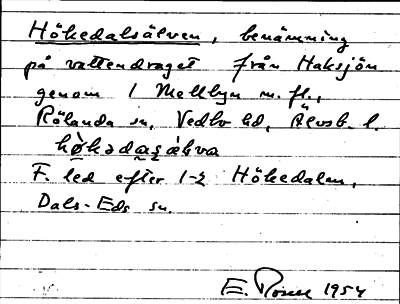 Hökedalsälven, benämning
på vattendraget från Haksjön
genom 1 Mellbyn m. fl.,
Rölanda sn, Vedbo hd, Älvsb. l.
F. led efter 1-2 Hökedalen,
Dals-Eds sn.
E. 1954